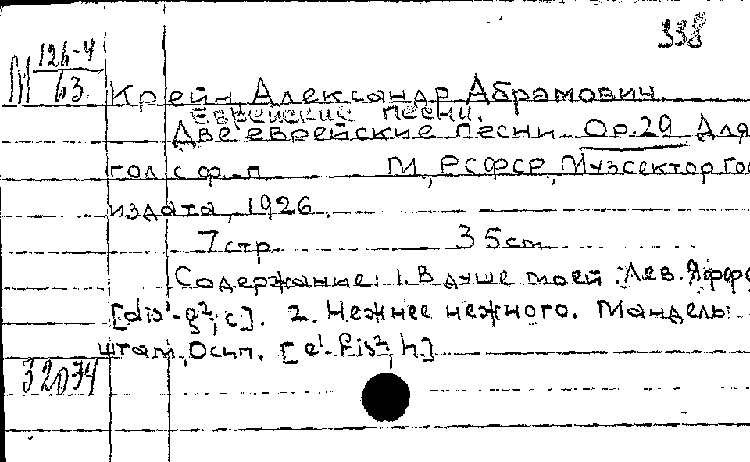 338
М 126-4
63
Крейн Александр Абрамович.
Еврейские песни.
Две еврейские песни Ор.29 Для
гол с ф-п М., РСФСР, Музсектор Гос
издата, 1926.
7 стр 35cm
Содержание: 1. В душе моей. Лев. Яффе
[dis¹-g²; c]. 2. Нежнее нежного. Мандель
штам, Осип. [e¹-fis², h]
32074